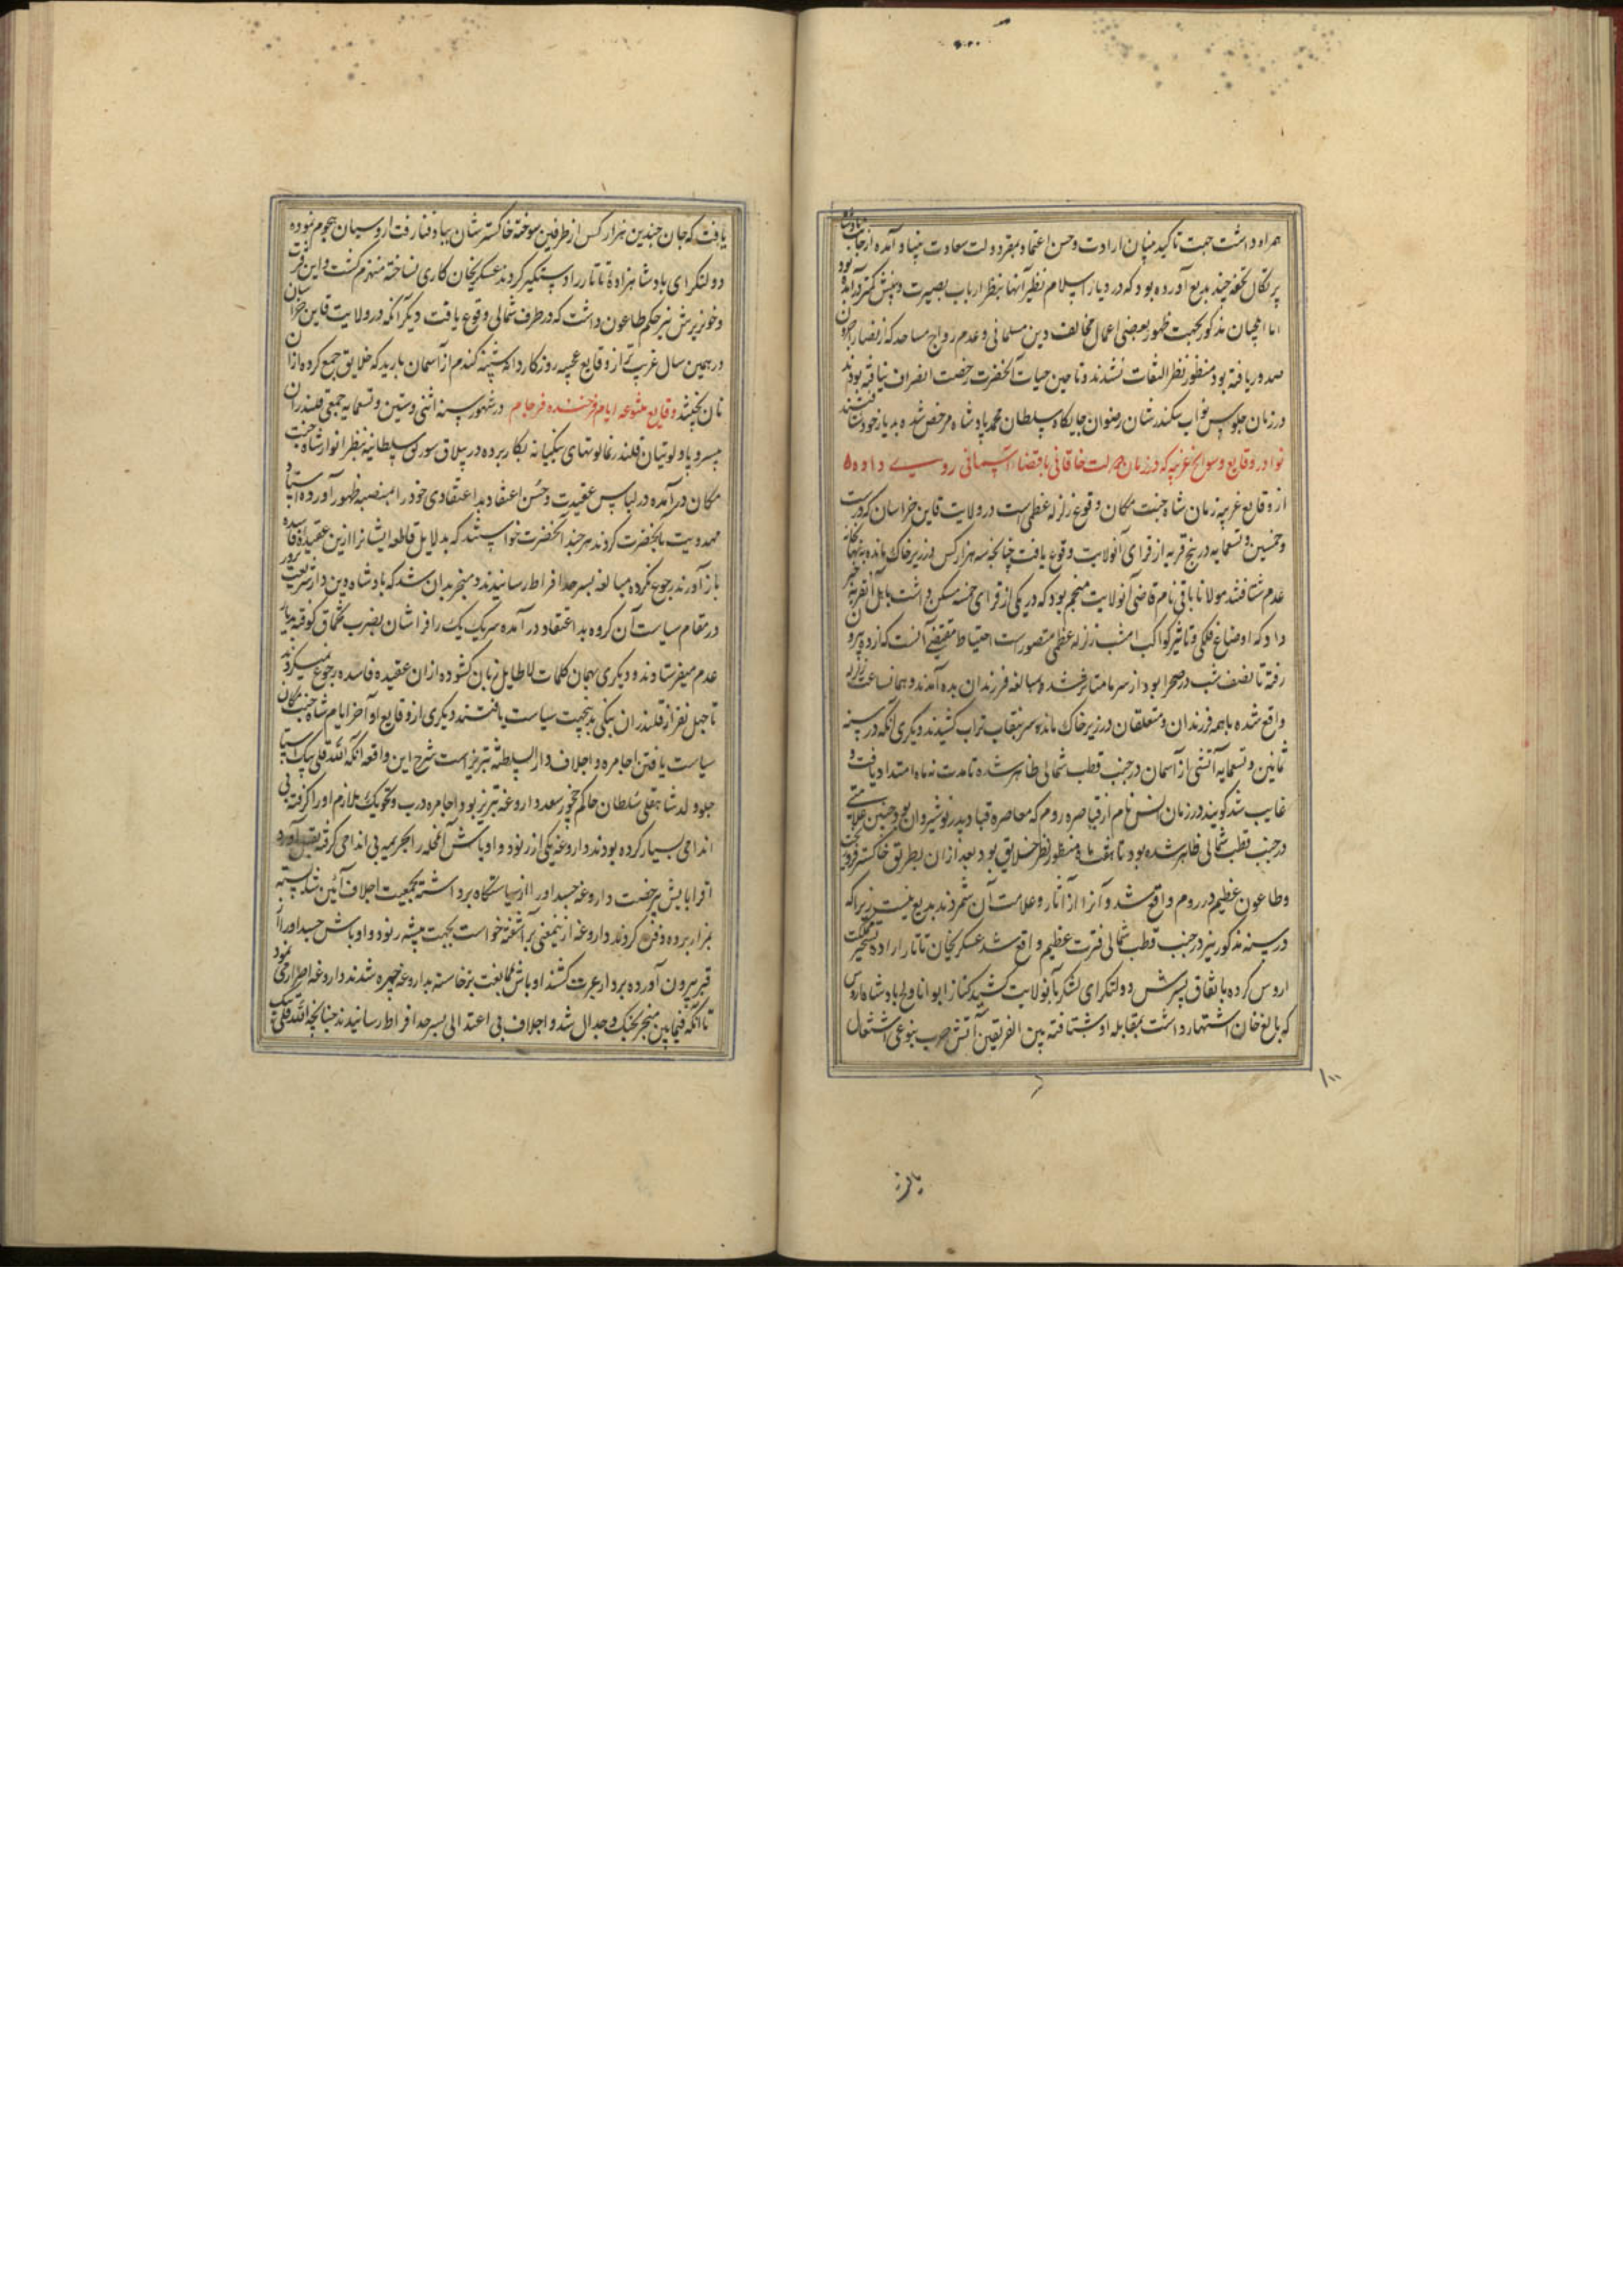 همراه داشت جهت تاکید بنیان ارادت و حسن اعتماد بمقر دولت سعادت بنیاد آمده از جانب پادشاه
پرتکال تحفه چند بدیع آورده بود که در دیار اسلام نظیر آنها بنظر ارباب بصیرت و بینش کمتر درآمده بود
اما ایلچیان مذکور بجهت ظهور بعضی اعمال مخالف دین مسلمانی و عدم رواج مساجد که از نصارا
صدور یافته بود منظور نظر التفات نشدند و تا حین حیات آنحضرت رخصت انصراف نیافته بودند
در زمان جلوس نواب سکندرشان رضوان جایگاه سلطان محمد پادشاه مرخص شده بدیار خود شتافتند
نوادر وقایع و سوانح غریبه که در زمان دولت خاقانی باقتضاء آسمانی روی داده
از وقایع غریبه زمان شاه جنت مکان وقوع زلزله عظمی است در ولایت قاین خراسان که در ست
و خمسین و تسعمایه در پنج قریه از قرای آنولایت وقوع یافت چنانچه سه هزار کس در زیر خاک مانده بنهانخانه
عدم شتافتند مولانا باقی نام قاضی آنولایت منجم بود که در یکی از قرای خمسه مسکن داشت باهل آنقریه خبر
داد که اوضاع فلکی و تاثیر کواکب امشب زلزله عظمی متصور است احتیاط مقتضی آنست که از ده بیرون
رفته تا نصف شب در صحرا بود از سرما متاثر شد و بمبالغه فرزندان بده آمدند و همانساعت زلزله
واقع شده با همه فرزندان و متعلقان در زیر خاک مانده سر بنقاب تراب کشیدند دیگری آنکه در سنه
ثمانین و تسعمایه آتشی از آسمان در جنب قطب شمالی ظاهر شده تا مدت نه ماه امتداد یافت و
غایب شد گویند در زمان نام از قیاصره روم که معاصره قباد پدر نوشیروان بود چنین علامتی
در جنب قطب شمالی ظاهر شده بود تا هفت ماه منظور نظر خلایق بود بعد از آن بطریق خاکستر
و طاعون عظیم در روم واقع شد و آنرا از آثار و علامت آن شمردند بدیع نیست زیرا که
در سنه مذکور نیز در جنب قطب شمالی فترت عظیم واقع شد عسکریخان تاتار اراده تسخیر مملکت
اروس کرده باتفاق پسرش دولتکرای لشکر بآنولایت کشید پادشاه اروس
که بالغ خان اشتهار داشت بمقابله او شتافته بین الفریقین آتش حرب بنوعی اشتعال
یافت که جان چندین هزار کس از طرفین سوخته خاکسترشان بباد فنا رفت اروسیان هجوم نموده
دولتکرای پادشاهزاده تاتار را دستگیر کردند عسکریخان کاری نساخته منهزم گشت و این فترت
و خونریزش نیز حکم طاعون داشت که در طرف شمالی وقوع یافت دیگر آنکه در ولایت قاین خراسان
در همین سال غریب تر از وقایع عجیبه روزگار دانه گندم از آسمان بارید که خلایق جمع کرده از آن
نان پختند وقایع متنوعه ایام فرخنده فرجام در شهور سنه اثنی و ستین و تسعمایه جمعی قلندران
بی سر و پا و لوتیان قلندرنما لوتهای بنگیانه بکار برده در ییلاق سورلق سلطانیه بنظر انوار شاه جنت
مکان درآمده در لباس عقیدت و حسن اعتقاد بداعتقادی خود را بمنصه ظهور آورده اسناد
مهدویت بآنحضرت کردند هر چند آنحضرت خواستند که بدلایل قاطعه ایشانرا ازین عقیده فاسده
باز آورند رجوع نکرده مبالغه بسرحد افراط رسانیدند و منجر بدان شد که پادشاه دین دار شریعت پرور
در مقام سیاست آن گروه بداعتقاد درآمده سر یک یک را فراشان بضرب تخماق کوفته بدیار
عدم میفرستادند و دیگری بهمان کلمات لاطایل زبان گشوده از آن عقیده فاسده رجوع نمیکردند
تا چهل نفر از قلندران بنگی بدینجهت سیاست یافتند دیگری از وقایع اواخر ایام شاه جنت مکان
سیاست یافتن اجامره و اجلاف دارالسلطنه تبریز است شرح این واقعه آنکه الله قلی بیک استاجلو
ولد شاهقلی سلطان حاکم چخور سعد داروغه تبریز بود اجامره درب ملازم او را گرفته بی
اندامی بسیار کرده بودند داروغه یکی از رنود و اوباش آنمحله را بجریمه بی اندامی گرفته بقتل آورد
اقربایش بیرخصت داروغه جسد او را از سیاستگاه برداشته بجمعیت اجلاف آئین
بمزار برده دفن کردند داروغه ازینمعنی برآشفته خواست بجهت تنبیه رنود و اوباش جسد او را از
قبر بیرون آورده بردار عبرت کشند اوباش بممانعت برخاسته بداروغه چیره شدند داروغه اصرار نمود
تا آنکه فیمابین منجر بجنگ و جدال شد و اجلاف بی اعتدالی بسرحد افراط رسانیدند چنانچه الله قلی بیک